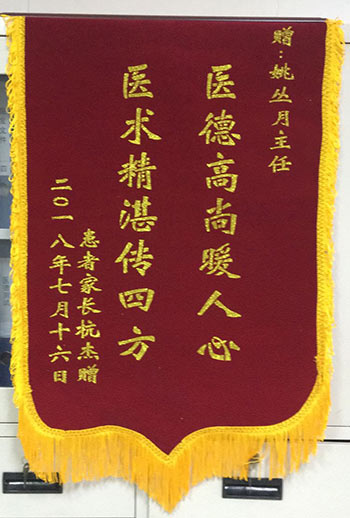 赠：姚丛月主任
医德高尚暖人心
医术精湛传四方
患者家长杭杰赠
二〇一八年七月十六日